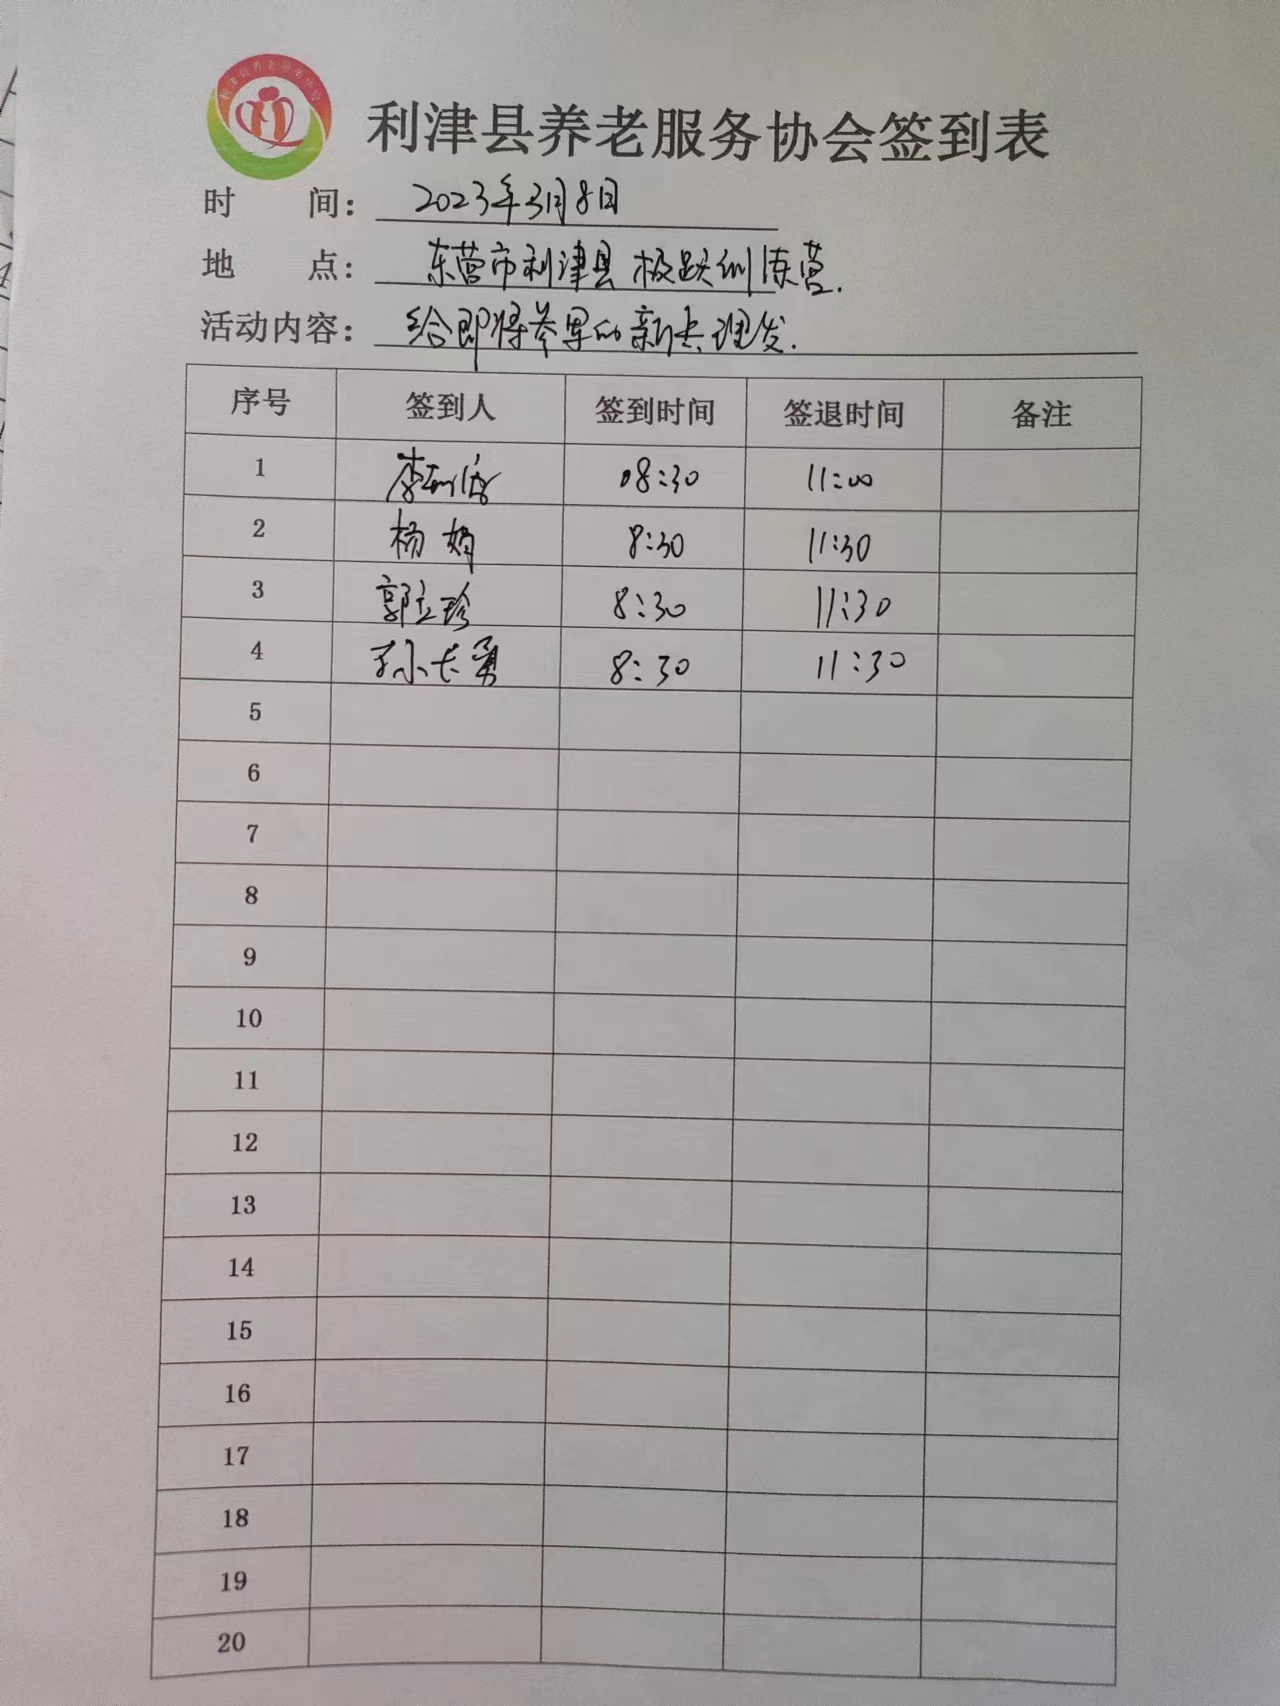 利津县养老服务协会
利津县养老服务协会签到表
时 间： 2023年3月8日
地 点： 东营市利津县极跃训练营.
活动内容： 给即将参军的新兵理发.
序号 签到人 签到时间 签退时间 备注
1 李 08:30 11:00
2 杨娟 8:30 11:30
3 郭立珍 8:30 11:30
4 孙长勇 8:30 11:30
5
6
7
8
9
10
11
12
13
14
15
16
17
18
19
20